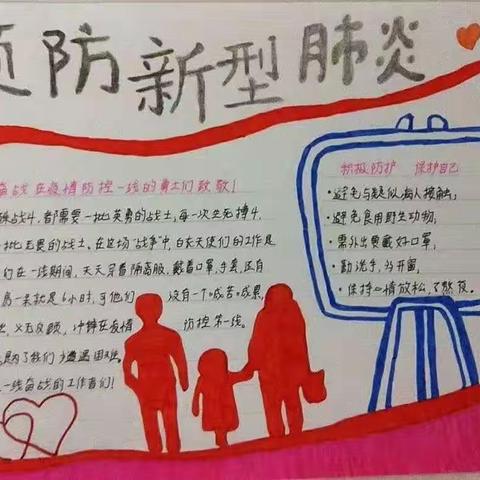 预防新型肺炎
奋战在疫情防控一线的勇士们致敬!
殊战斗,都需要一批英勇的战士,每一次生死搏斗,
一批无畏的战士,在这场"战争"中,白衣天使们的工作是
们在一线期间,天天穿着隔离服,戴着口罩,手套,还有
一来就是6小时,可他们没有一个喊苦喊累,
义无反顾,冲锋在疫情防控第一线。
了我们
一线奋战的工作者们!
积极防护 保护自己
·避免与疑似病人接触,
·避免食用野生动物,
·需外出要戴好口罩,
·勤洗手,
·保持心情放松,不熬夜。